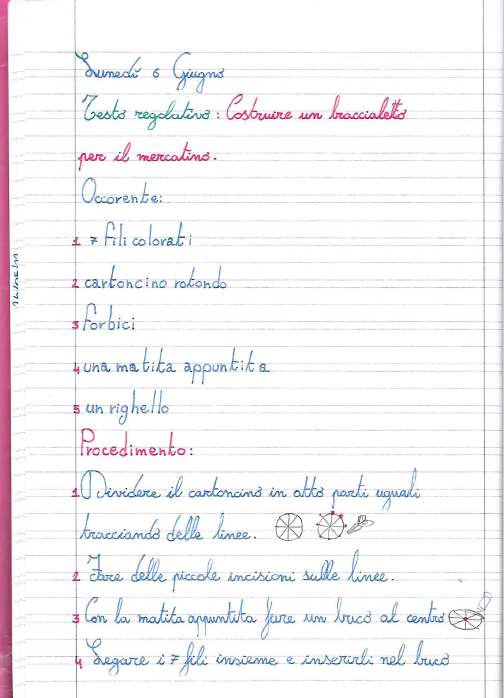 Lunedì 6 Giugno
Testo regolativo: Costruire un braccialetto
per il mercatino.
Occorente:
1 7 fili colorati
2 cartoncino rotondo
3 forbici
4 una matita appuntita
5 un righello
Procedimento:
1 Dividere il cartoncino in otto parti uguali
tracciando delle linee.
2 Fare delle piccole incisioni sulle linee.
3 Con la matita appuntita fare un buco al centro
4 Legare i 7 fili insieme e inserirli nel buco